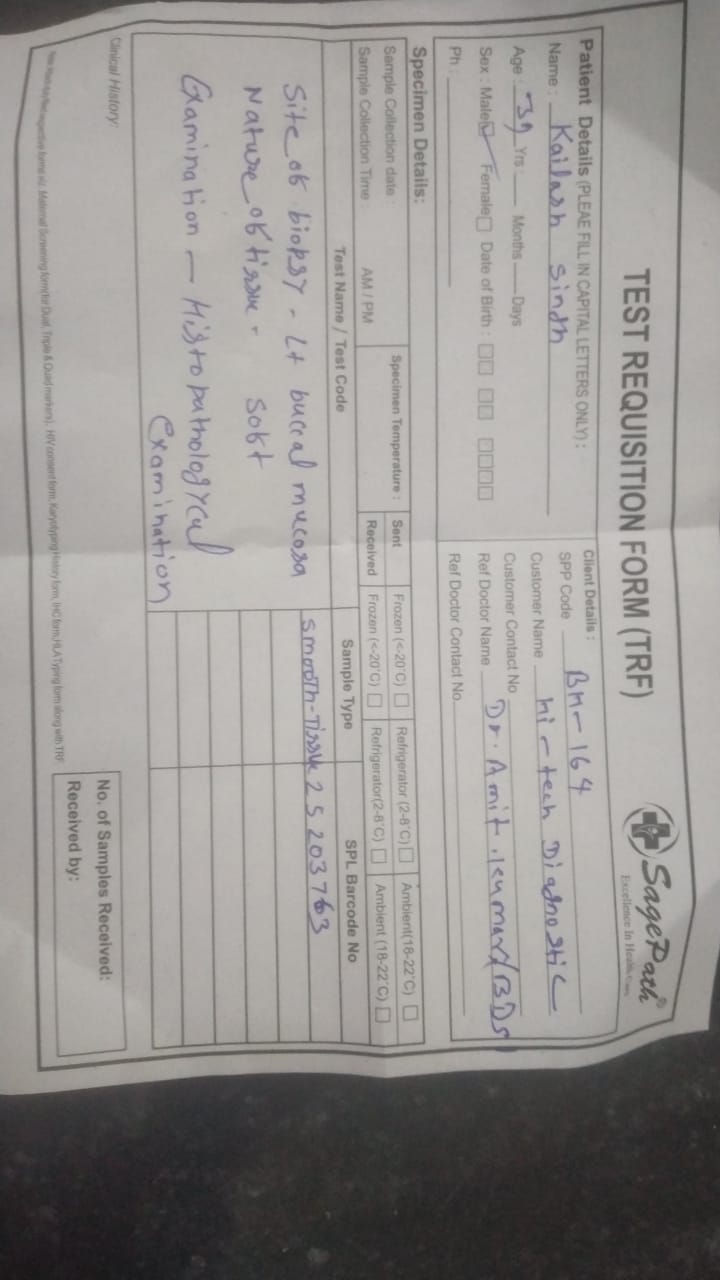 TEST REQUISITION FORM (TRF)
SagePath®
Excellence In Health Care
Patient Details (PLEAE FILL IN CAPITAL LETTERS ONLY) :
Name : Kailash Singh
Age : 39 Yrs : Months Days
Sex : Male Female Date of Birth :
Ph :
Client Details :
SPP Code BH-164
Customer Name Hi-tech Diagnostic
Customer Contact No
Ref Doctor Name Dr. Amit Kumar/BDS
Ref Doctor Contact No
Specimen Details:
Sample Collection date :
Sample Collection Time : AM / PM
Specimen Temperature :
Sent Frozen (<-20°C) Refrigerator (2-8°C) Ambient(18-22°C)
Received Frozen (<-20°C) Refrigerator(2-8°C) Ambient (18-22°C)
Test Name / Test Code Sample Type SPL Barcode No
Site of biopsy - Lt buccal mucosa
Smooth-Tissue 25203763
Nature of tissue - Soft
Examination - Histopathologycal
Examination
Clinical History:
No. of Samples Received:
Received by:
Maternal Screening form(for Dual, Triple & Quad markers), HIV consent form, Karyotyping History form, IHC form, HLA Typing form along with TRF